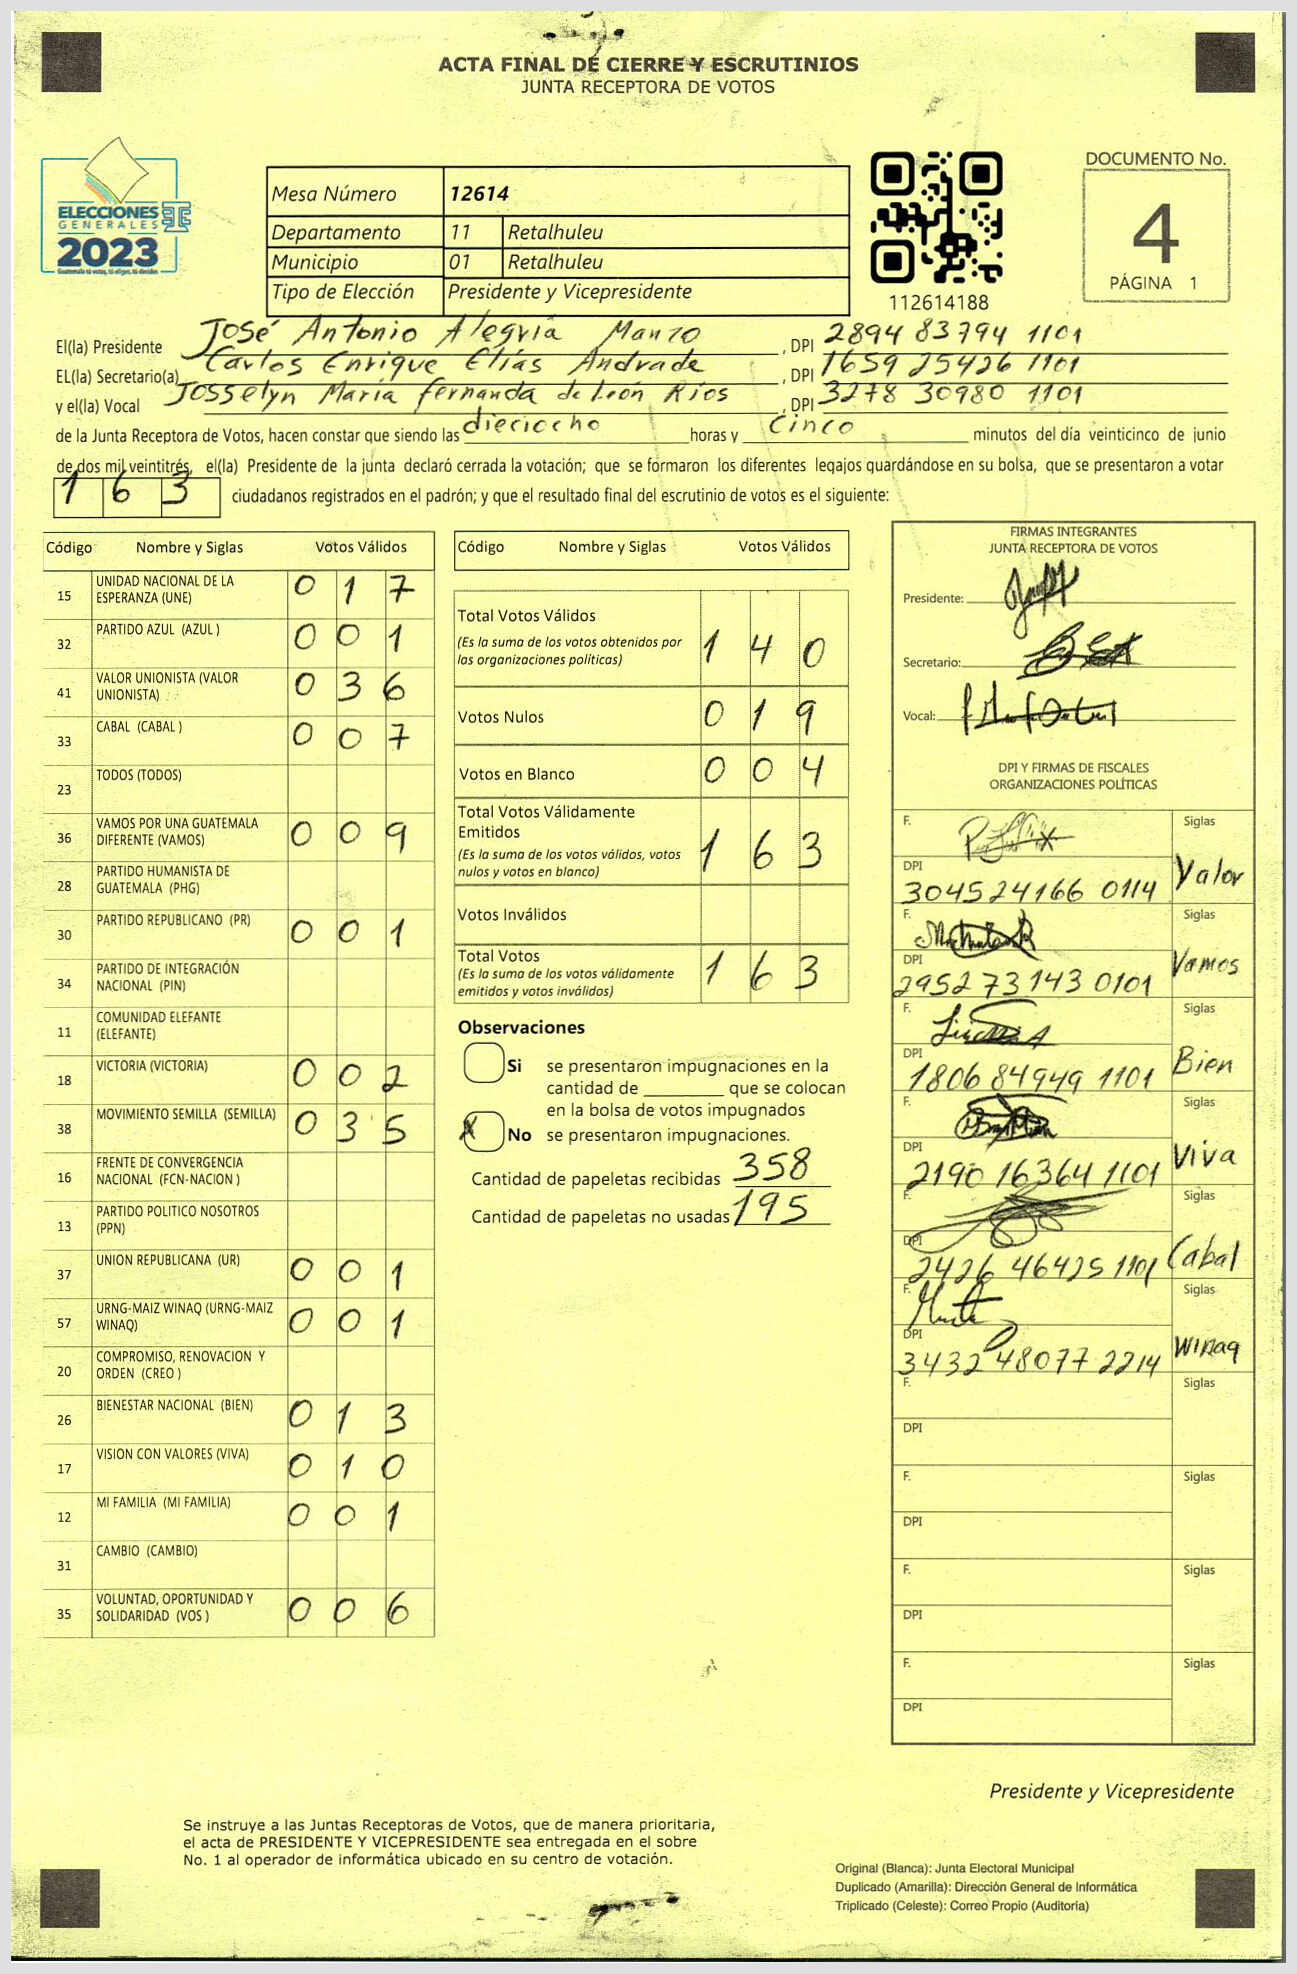 ACTA FINAL DE CIERRE Y ESCRUTINIOS
JUNTA RECEPTORA DE VOTOS
ELECCIONES
GENERALES
2023
Guatemala tú votas, tú eliges, tú decides
Mesa Número 12614
Departamento 11 Retalhuleu
Municipio 01 Retalhuleu
Tipo de Elección Presidente y Vicepresidente
112614188
DOCUMENTO No.
4
PÁGINA 1
El(la) Presidente José Antonio Alegría Manzo, DPI 2894 83794 1101
EL(la) Secretario(a) Carlos Enrique Elías Andrade, DPI 1659 25426 1101
y el(la) Vocal Josselyn María fernanda de León Ríos, DPI 3278 30980 1101
de la Junta Receptora de Votos, hacen constar que siendo las dieciocho horas y cinco minutos del día veinticinco de junio
de dos mil veintitrés, el(la) Presidente de la junta declaró cerrada la votación; que se formaron los diferentes legajos guardándose en su bolsa, que se presentaron a votar
163 ciudadanos registrados en el padrón; y que el resultado final del escrutinio de votos es el siguiente:
Código Nombre y Siglas Votos Válidos
15 UNIDAD NACIONAL DE LA ESPERANZA (UNE) 0 1 7
32 PARTIDO AZUL (AZUL ) 0 0 1
41 VALOR UNIONISTA (VALOR UNIONISTA) 0 3 6
33 CABAL (CABAL ) 0 0 7
23 TODOS (TODOS)
36 VAMOS POR UNA GUATEMALA DIFERENTE (VAMOS) 0 0 9
28 PARTIDO HUMANISTA DE GUATEMALA (PHG)
30 PARTIDO REPUBLICANO (PR) 0 0 1
34 PARTIDO DE INTEGRACIÓN NACIONAL (PIN)
11 COMUNIDAD ELEFANTE (ELEFANTE)
18 VICTORIA (VICTORIA) 0 0 2
38 MOVIMIENTO SEMILLA (SEMILLA) 0 3 5
16 FRENTE DE CONVERGENCIA NACIONAL (FCN-NACION )
13 PARTIDO POLITICO NOSOTROS (PPN)
37 UNION REPUBLICANA (UR) 0 0 1
57 URNG-MAIZ WINAQ (URNG-MAIZ WINAQ) 0 0 1
20 COMPROMISO, RENOVACION Y ORDEN (CREO )
26 BIENESTAR NACIONAL (BIEN) 0 1 3
17 VISION CON VALORES (VIVA) 0 1 0
12 MI FAMILIA (MI FAMILIA) 0 0 1
31 CAMBIO (CAMBIO)
35 VOLUNTAD, OPORTUNIDAD Y SOLIDARIDAD (VOS ) 0 0 6
Código Nombre y Siglas Votos Válidos
Total Votos Válidos
(Es la suma de los votos obtenidos por
las organizaciones políticas) 1 4 0
Votos Nulos 0 1 9
Votos en Blanco 0 0 4
Total Votos Válidamente
Emitidos
(Es la suma de los votos válidos, votos
nulos y votos en blanco) 1 6 3
Votos Inválidos
Total Votos
(Es la suma de los votos válidamente
emitidos y votos inválidos) 1 6 3
Observaciones
Si se presentaron impugnaciones en la
cantidad de ________ que se colocan
en la bolsa de votos impugnados
X No se presentaron impugnaciones.
Cantidad de papeletas recibidas 358
Cantidad de papeletas no usadas 195
FIRMAS INTEGRANTES
JUNTA RECEPTORA DE VOTOS
Presidente:
Secretario:
Vocal:
DPI Y FIRMAS DE FISCALES
ORGANIZACIONES POLÍTICAS
F. Siglas
DPI 304524166 0114 Valor
F. Siglas
DPI 2952 73143 0101 Vamos
F. Siglas
DPI 1806 84949 1101 Bien
F. Siglas
DPI 2190 16364 1101 Viva
F. Siglas
DPI 2426 46425 1101 Cabal
F. Siglas
DPI 3432 48077 2214 Winaq
F. Siglas
DPI
F. Siglas
DPI
F. Siglas
DPI
F. Siglas
DPI
Presidente y Vicepresidente
Se instruye a las Juntas Receptoras de Votos, que de manera prioritaria,
el acta de PRESIDENTE Y VICEPRESIDENTE sea entregada en el sobre
No. 1 al operador de informática ubicado en su centro de votación.
Original (Blanca): Junta Electoral Municipal
Duplicado (Amarilla): Dirección General de Informática
Triplicado (Celeste): Correo Propio (Auditoría)